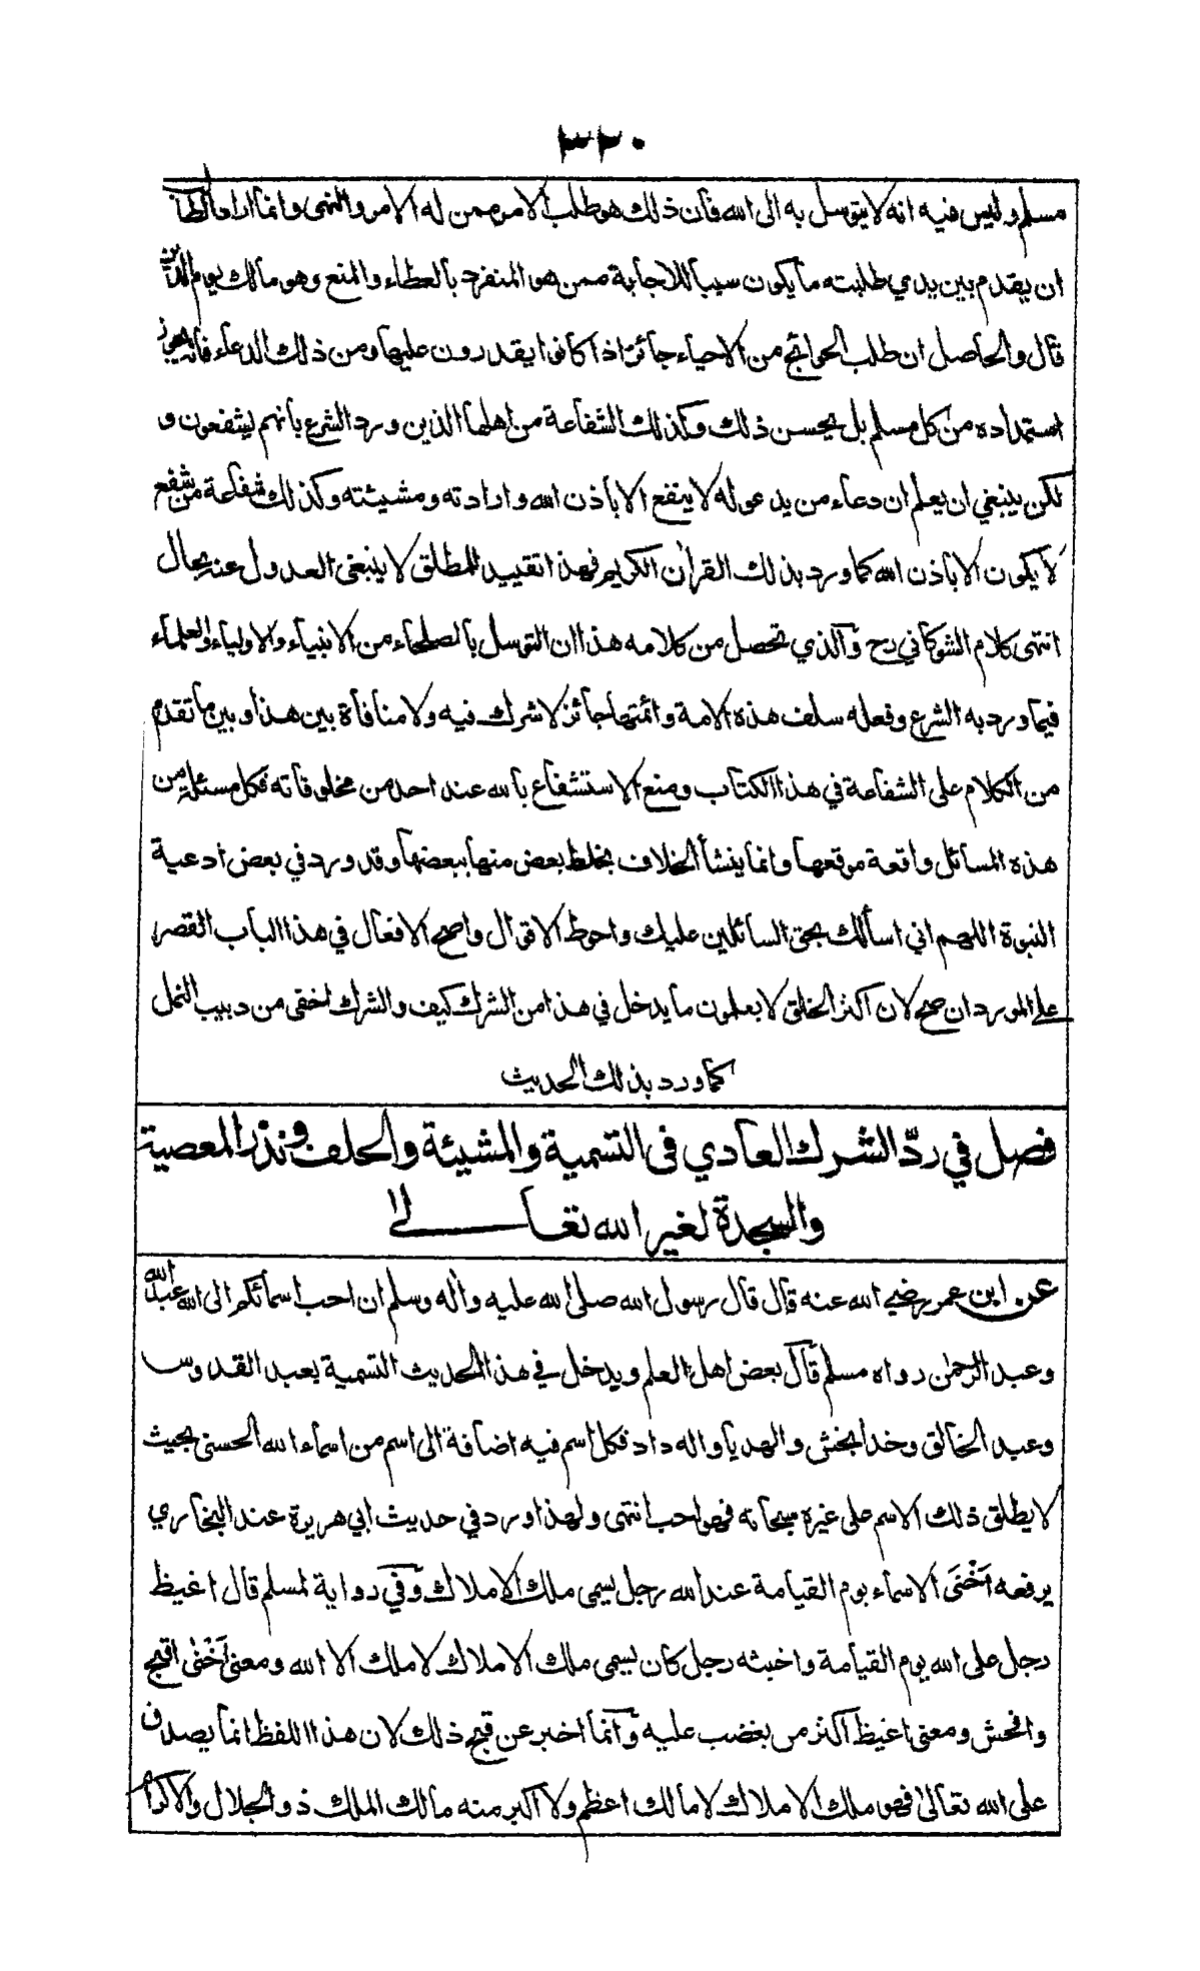 ٣٢٠
مسلم وليس فيه انه لا يتوسل به الى الله فان ذلك هو طلب الامر ممن له الامر والنهى وانما اراد الطالب
ان يقدم بين يدي طلبته ما يكون سببا للاجابة ممن هو المنفرد بالعطاء والمنع وهو مالك يوم الدين
قال والحاصل ان طلب الحوائج من الاحياء جائز اذا كانوا يقدرون عليها ومن ذلك الدعاء فانه يجوز
استمداده من كل مسلم بل يحسن ذلك وكذلك الشفاعة من اهلها الذين ورد الشرع بانهم يشفعون و
لكن ينبغي ان يعلم ان دعاء من يدعو له لا ينفع الا باذن الله وارادته ومشيئته وكذلك شفاعة من شفع
لا يكون الا باذن الله كما ورد بذلك القرآن الكريم فهذا تقييد للمطلق لا ينبغى العدول عنه بحال
انتهى كلام الشوكاني رح والذي تحصل من كلامه هذا ان التوسل بالصلحاء من الانبياء والاولياء والعلماء
فيما ورد به الشرع وفعله سلف هذه الامة وائمتها جائز لا شرك فيه ولا منافاة بين هذا وبين ما تقدم
من الكلام على الشفاعة في هذا الكتاب ومنع الاستشفاع بالله عند احد من مخلوقاته فكل مسئلة من
هذه المسائل واقعة موقعها وانما ينشأ الخلاف بخلط بعض منها ببعضها وقد ورد في بعض ادعية
النبوة اللهم اني اسألك بحق السائلين عليك واحوط الاقوال واصح الافعال في هذا الباب القصر
على المورد ان صح لان اكثر الخلق لا يعلمون ما يدخل في هذا من الشرك كيف والشرك اخفى من دبيب النمل
كما ورد بذلك الحديث
فصل في ردّ الشرك العادي فى التسمية والمشيئة والحلف ونذر المعصية
والسجدة لغير الله تعالى
عن ابن عمر رضي الله عنه قال قال رسول الله صلى الله عليه وآله وسلم ان احب اسمائكم الى الله عبد الله
وعبد الرحمٰن رواه مسلم قال بعض اهل العلم ويدخل في هذا الحديث التسمية بعبد القدوس
وعبد الخالق وخدابخش والهديا واله داد فكل اسم فيه اضافة الى اسم من اسماء الله الحسنى بحيث
لا يطلق ذلك الاسم على غيره سبحانه فهو احب انتهى ولهذا ورد في حديث ابي هريرة عند البخاري
يرفعه اَخْنَى الاسماء يوم القيامة عند الله رجل يسمى ملك الاملاك وفي رواية لمسلم قال اغيظ
رجل على الله يوم القيامة واخبثه رجل كان يسمى ملك الاملاك لا ملك الا الله ومعنى اَخْنٰى اقبح
وافحش ومعنى اغيظ اكثر من يغضب عليه وانما اخبر عن قبح ذلك لان هذا اللفظ انما يصدق
على الله تعالىٰ فهو ملك الاملاك لا مالك اعظم ولا اكبر منه مالك الملك ذو الجلال والاكرام